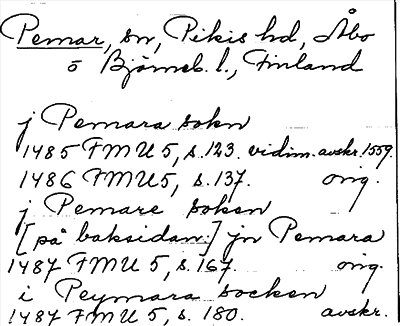 Pemar, sn, Pikis hd, Åbo
o Björneb. l., Finland
j Pemara sokn
1485 FMU 5, s. 123. vidim. avskr. 1559.
1486 FMU 5, s. 137. orig.
j Pemare soken
[på baksidan:] jn Pemara
1487 FMU 5, s. 167. orig.
i Peymara socken
1487 FMU 5, s. 180. avskr.